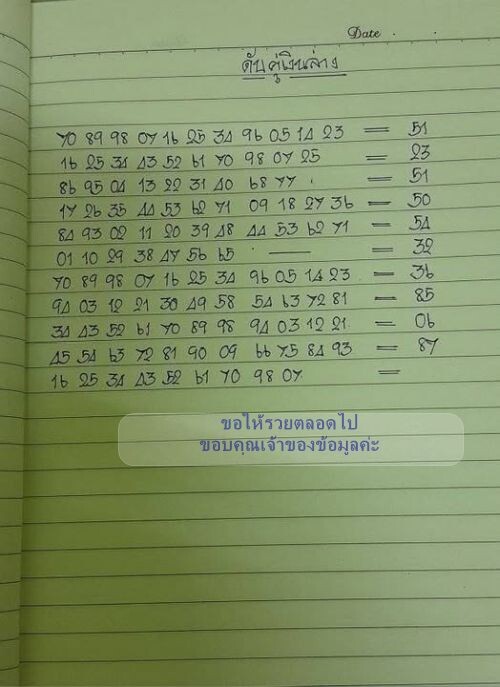 Date
ดับคู่เงินล่าง
70 89 98 07 16 25 34 96 05 14 23 = 51
16 25 34 43 52 61 70 98 07 25 = 23
86 95 04 13 22 31 40 68 77 = 51
17 26 35 44 53 62 71 09 18 27 36 = 50
84 93 02 11 20 39 48 44 53 62 71 = 54
01 10 29 38 47 56 65 — = 32
70 89 98 07 16 25 34 96 05 14 23 = 36
94 03 12 21 30 49 58 54 63 72 81 = 85
34 43 52 61 70 89 98 94 03 12 21 = 06
45 54 63 72 81 90 09 66 75 84 93 = 87
16 25 34 43 52 61 70 98 07 =
ขอให้รวยตลอดไป
ขอบคุณเจ้าของข้อมูลค่ะ